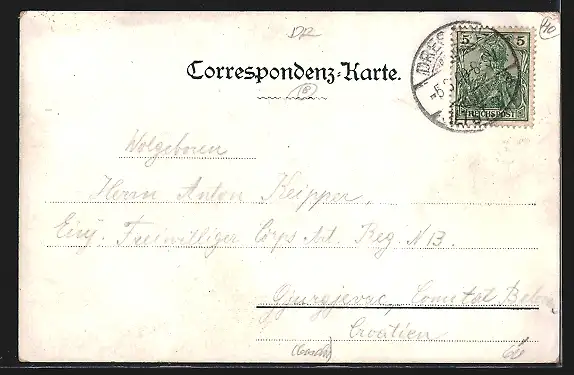 DR
40
Correspondenz-Karte.
DRES
5 5
REICHSPOST
Wolgeboren
Herrn Anton Keipper,
Einj. Freiwilliger Corps Art. Reg. N 13.
Gjurgjevac, Comitat Belovar
Croatien